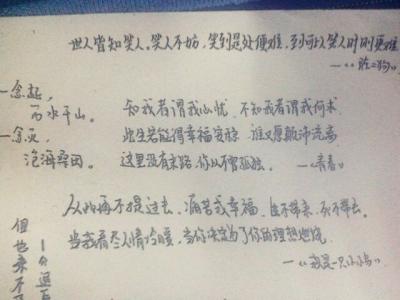 世人皆知笑人。笑人不妨，笑到是处便难，到可以笑人时则更难
——《陈二狗》
一念起，
万水千山。
一念灭，
沧海桑田。
知我者谓我心忧，不知我者谓我何求
此生若能得幸福安稳，谁又愿颠沛流离
这里没有末路，你从不曾孤独。——《青春》
从此再不提过去，痛苦或幸福，生不带来，死不带去。
当我看尽人情冷暖，当你决定为了你的理想燃烧
——《我是一只小小鸟》
但也来不
1分遥